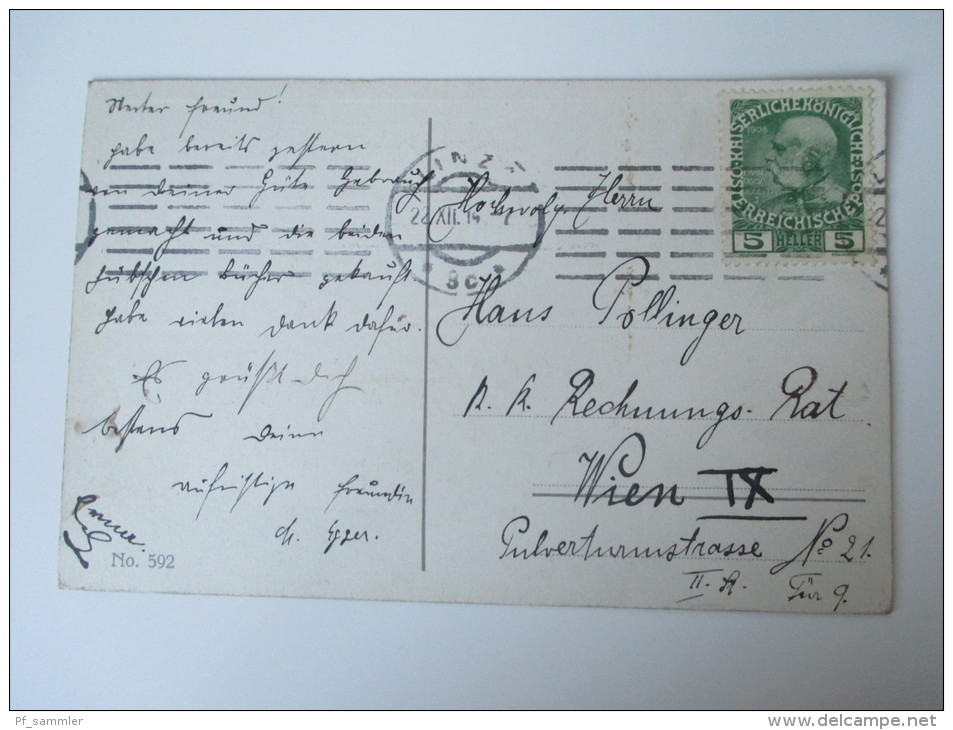 Werter Freund!
habe bereits gestern
von Deiner Güte Gebrauch
gemacht und die beiden
hübschen Bücher gekauft.
Habe vielen Dank dafür.
Es grüßt Dich
bestens Deine
aufrichtige Freundin
M. Egger.
No. 592
LINZ
28 XII. 14
* 8c *
1908
KAISERLICHE KÖNIGLICHE
ÖSTERREICHISCHE POST
5 HELLER 5
Hochwolg. Herrn
Hans Pollinger
K. K. Rechnungs-Rat
Wien IX
Pulverturmstrasse No 21.
II. St. Tür 9.
Pf_sammler
delcampe.net